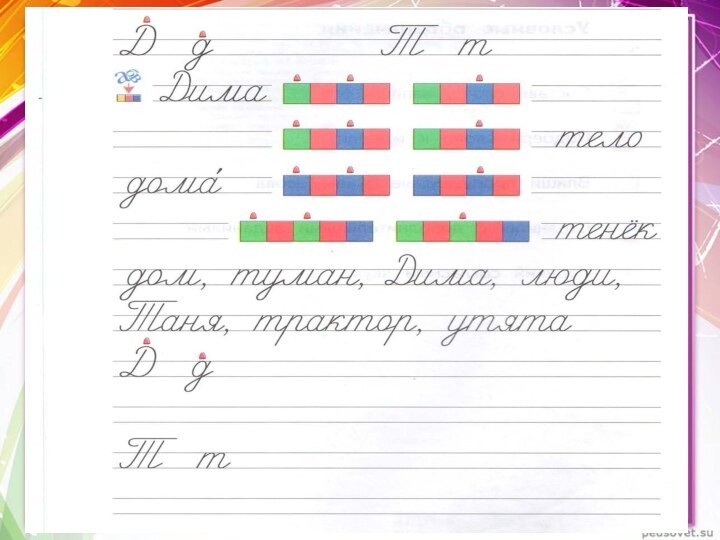 Д д Т т
Дима
тело
дома́
тенёк
дом, туман, Дима, люди,
Таня, трактор, утята
Д д
Т т
pedsovet.su